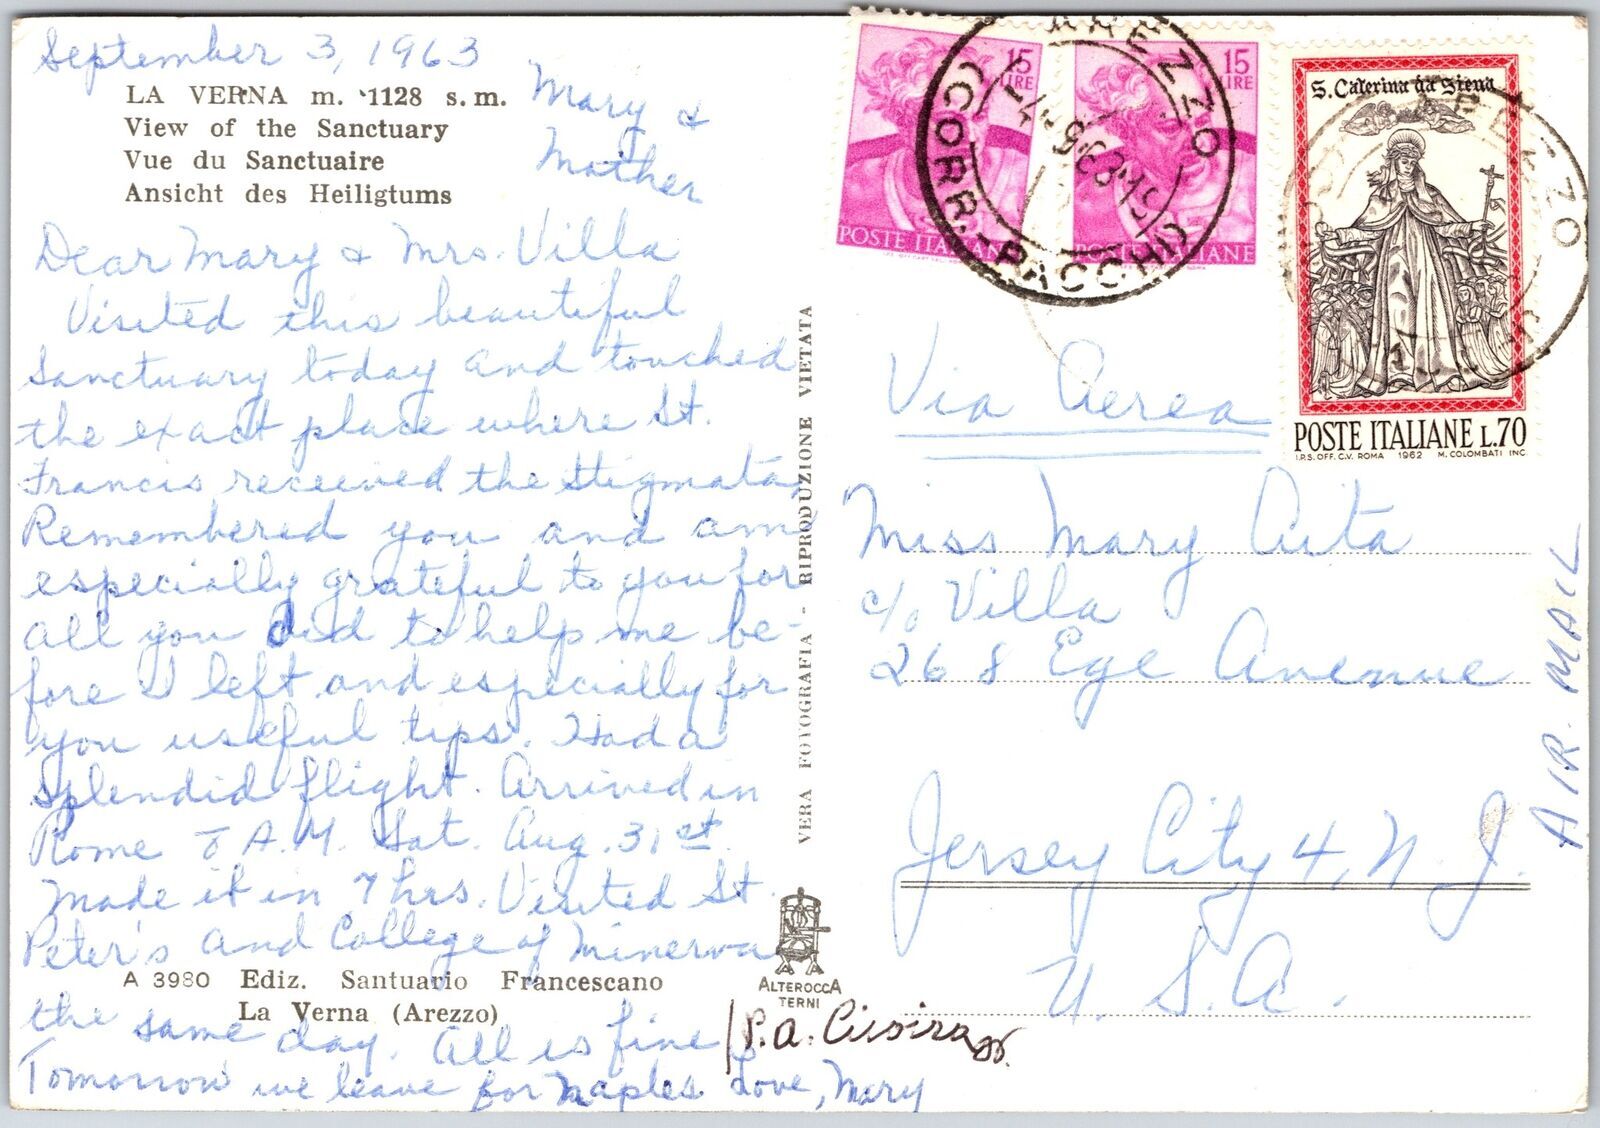 September 3, 1963
LA VERNA m. 1128 s. m.
View of the Sanctuary
Vue du Sanctuaire
Ansicht des Heiligtums
Mary &
Mother
Dear Mary & Mrs. Villa
Visited this beautiful
sanctuary today and touched
the exact place where St.
Francis received the stigmata,
Remembered you and am
especially grateful to you for
all you did to help me be-
fore I left and especially for
you useful tips. Had a
splendid flight. Arrived in
Rome 8 A.M. Sat. Aug. 31st.
Made it in 7 hrs. Visited St.
Peter's and College of Minerva
A 3980 Ediz. Santuario Francescano
La Verna (Arezzo)
the same day. All is fine
Tomorrow we leave for Naples. Love, Mary
VERA FOTOGRAFIA - RIPRODUZIONE VIETATA
ALTEROCCA
TERNI
P.A.
15
LIRE
POSTE ITALIANE
15
LIRE
POSTE ITALIANE
AREZZO
(CORR.-PACCHI)
S. Caterina da Siena
POSTE ITALIANE L.70
I.P.S. OFF. C.V. ROMA 1962 M. COLOMBATI INC.
AREZZO
Via Aerea
Miss Mary Aita
c/o Villa
268 Ege Avenue
Jersey City 4, N. J.
U. S. A.
AIR MAIL